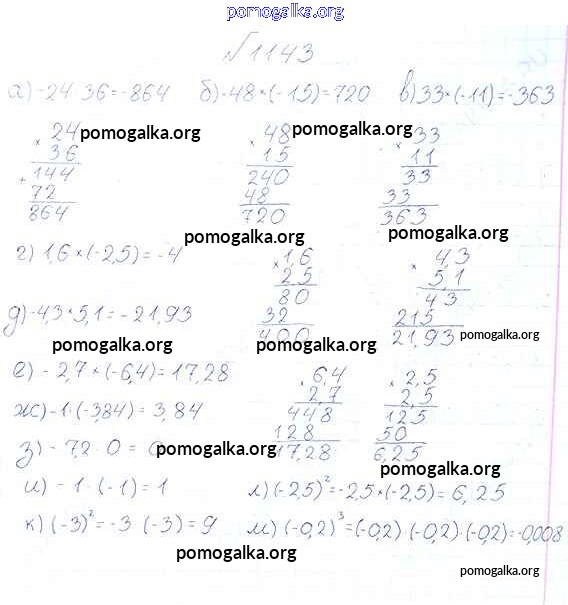 pomogalka.org
№1143
а) -24·36=-864 б) -48×(-15)=720 в) 33×(-11)=-363
× 24 pomogalka.org × 48 pomogalka.org × 33
36 15 11
+ 144 240 33
72 48 33
864 720 363
pomogalka.org pomogalka.org
г) 1,6×(-2,5)=-4 × 1,6 × 4,3
2,5 5,1
80 43
д) -4,3×5,1=-21,93 32 215
400 21,93 pomogalka.org
pomogalka.org pomogalka.org
е) -2,7×(-6,4)=17,28 × 6,4 × 2,5
2,7 2,5
ж) -1·(-3,84)=3,84 448 125
128 50
з) -7,2·0=0 pomogalka.org 17,28 6,25
pomogalka.org
и) -1·(-1)=1 л) (-2,5)²=-2,5×(-2,5)=6,25
к) (-3)²=-3·(-3)=9 м) (-0,2)³=(-0,2)·(-0,2)·(-0,2)=-0,008
pomogalka.org
pomogalka.org